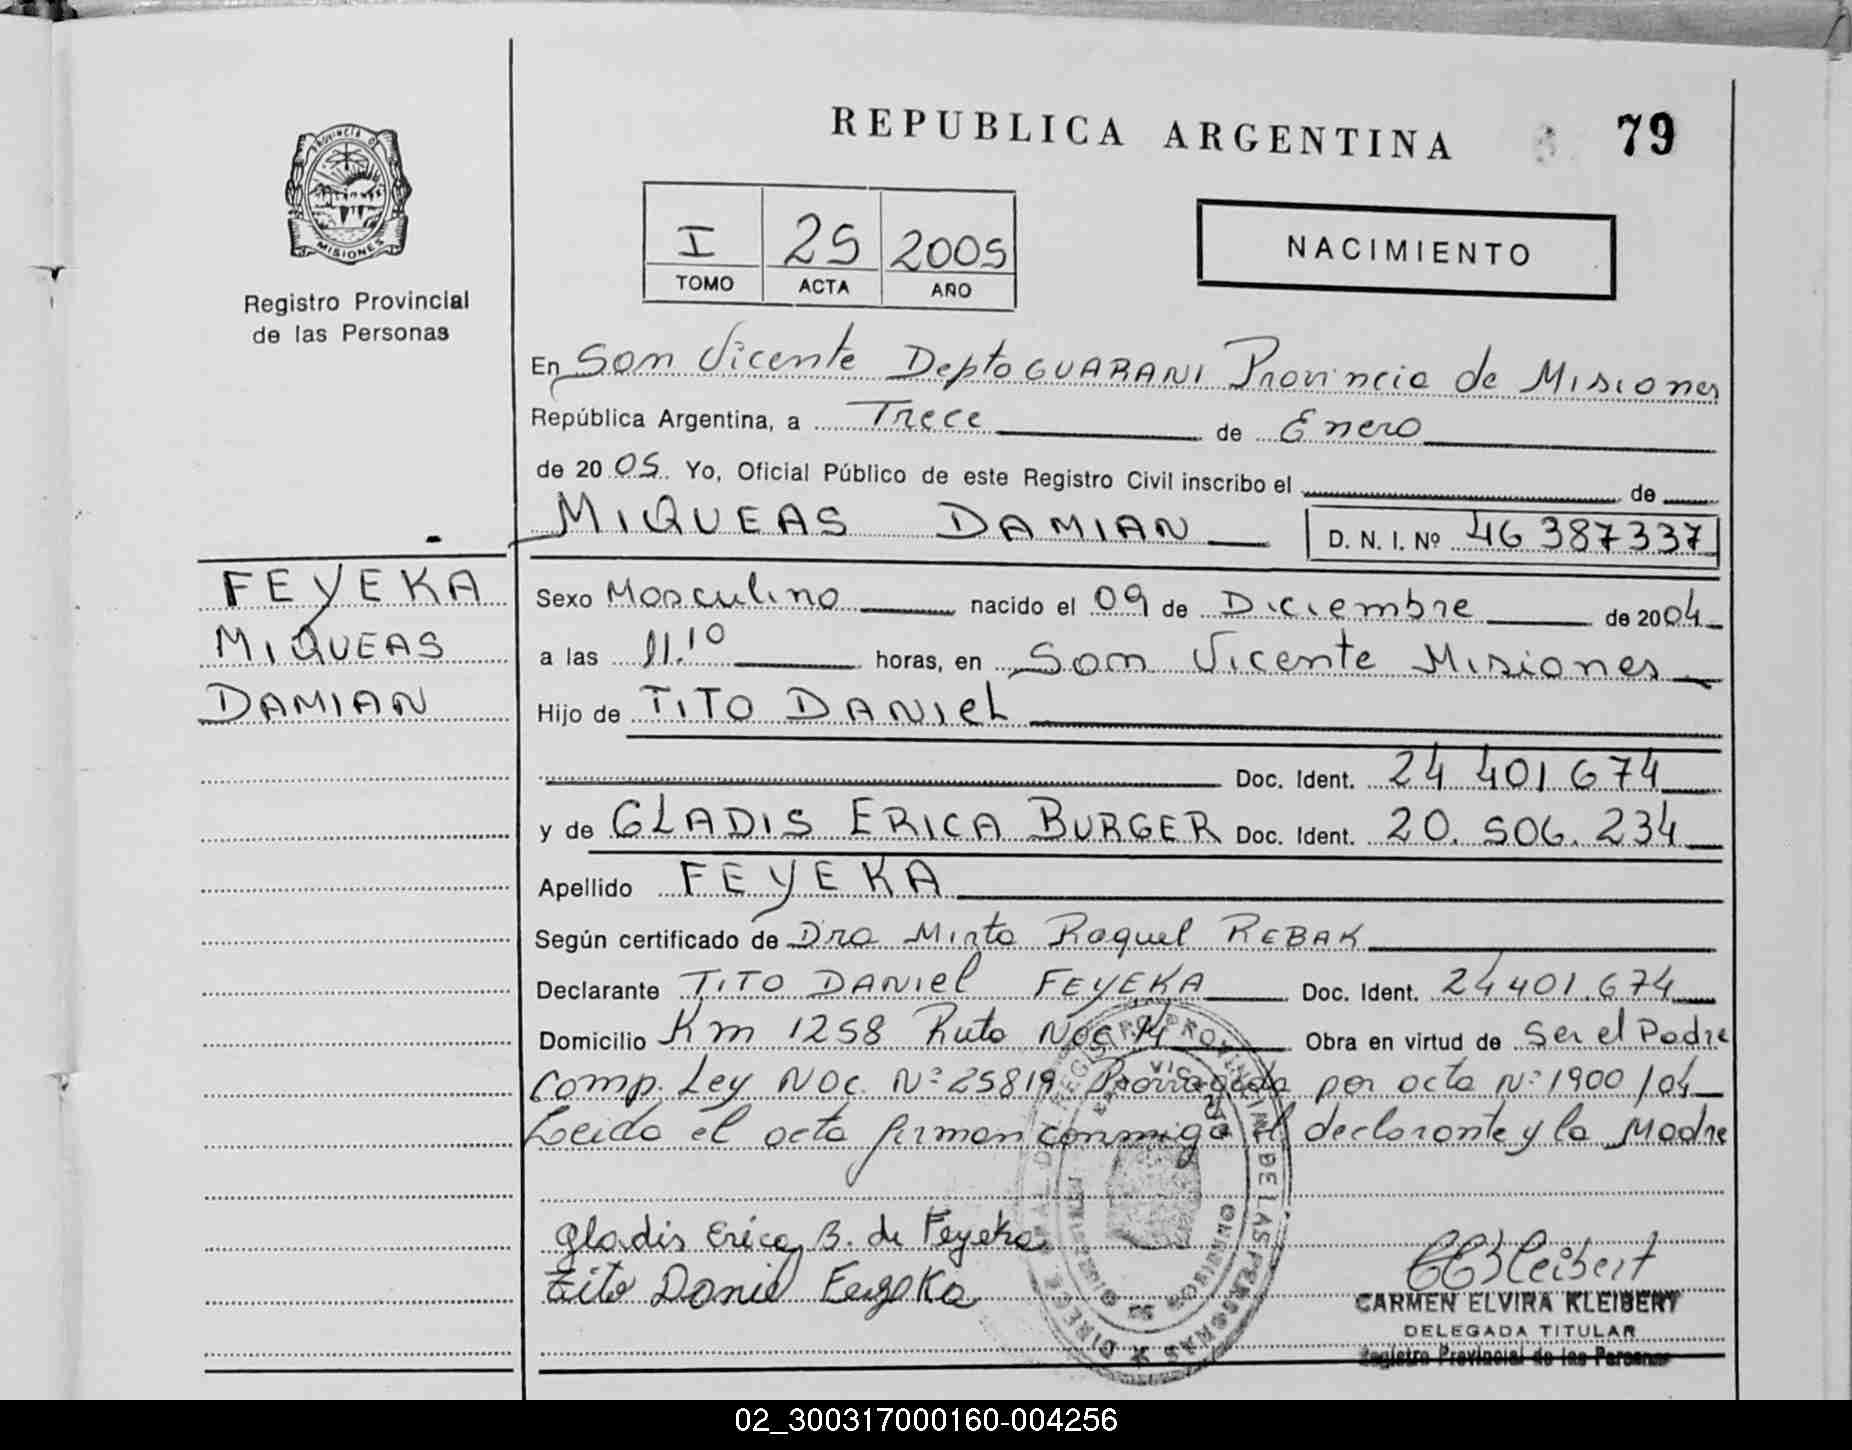 REPUBLICA ARGENTINA
79
PROVINCIA DE
MISIONES
Registro Provincial
de las Personas
I 25 2005
TOMO ACTA AÑO
NACIMIENTO
En San Vicente Depto GUARANI Provincia de Misiones
República Argentina, a Trece de Enero
de 2005. Yo, Oficial Público de este Registro Civil inscribo el de
MIQUEAS DAMIAN D. N. I. Nº 46 387337
FEYEKA
MIQUEAS
DAMIAN
Sexo Masculino nacido el 09 de Diciembre de 2004
a las 11.10 horas, en San Vicente Misiones
Hijo de TITO DANIEL
Doc. Ident. 24 401 674
y de GLADIS ERICA BURGER Doc. Ident. 20.506.234
Apellido FEYEKA
Según certificado de Dra Mirta Raquel REBAK
Declarante TITO DANIEL FEYEKA Doc. Ident. 24401.674
Domicilio Km 1258 Ruta Nac 14 Obra en virtud de Ser el Padre
Comp. Ley Nac. Nº 25819 Prorrogada por acta Nº 1900/04
Leida el acta firman conmigo el declarante y la Madre
Gladis Erica B. de Feyeka
Tito Daniel Feyeka
CEKleibert
CARMEN ELVIRA KLEIBERT
DELEGADA TITULAR
Registro Provincial de las Personas
02_300317000160-004256